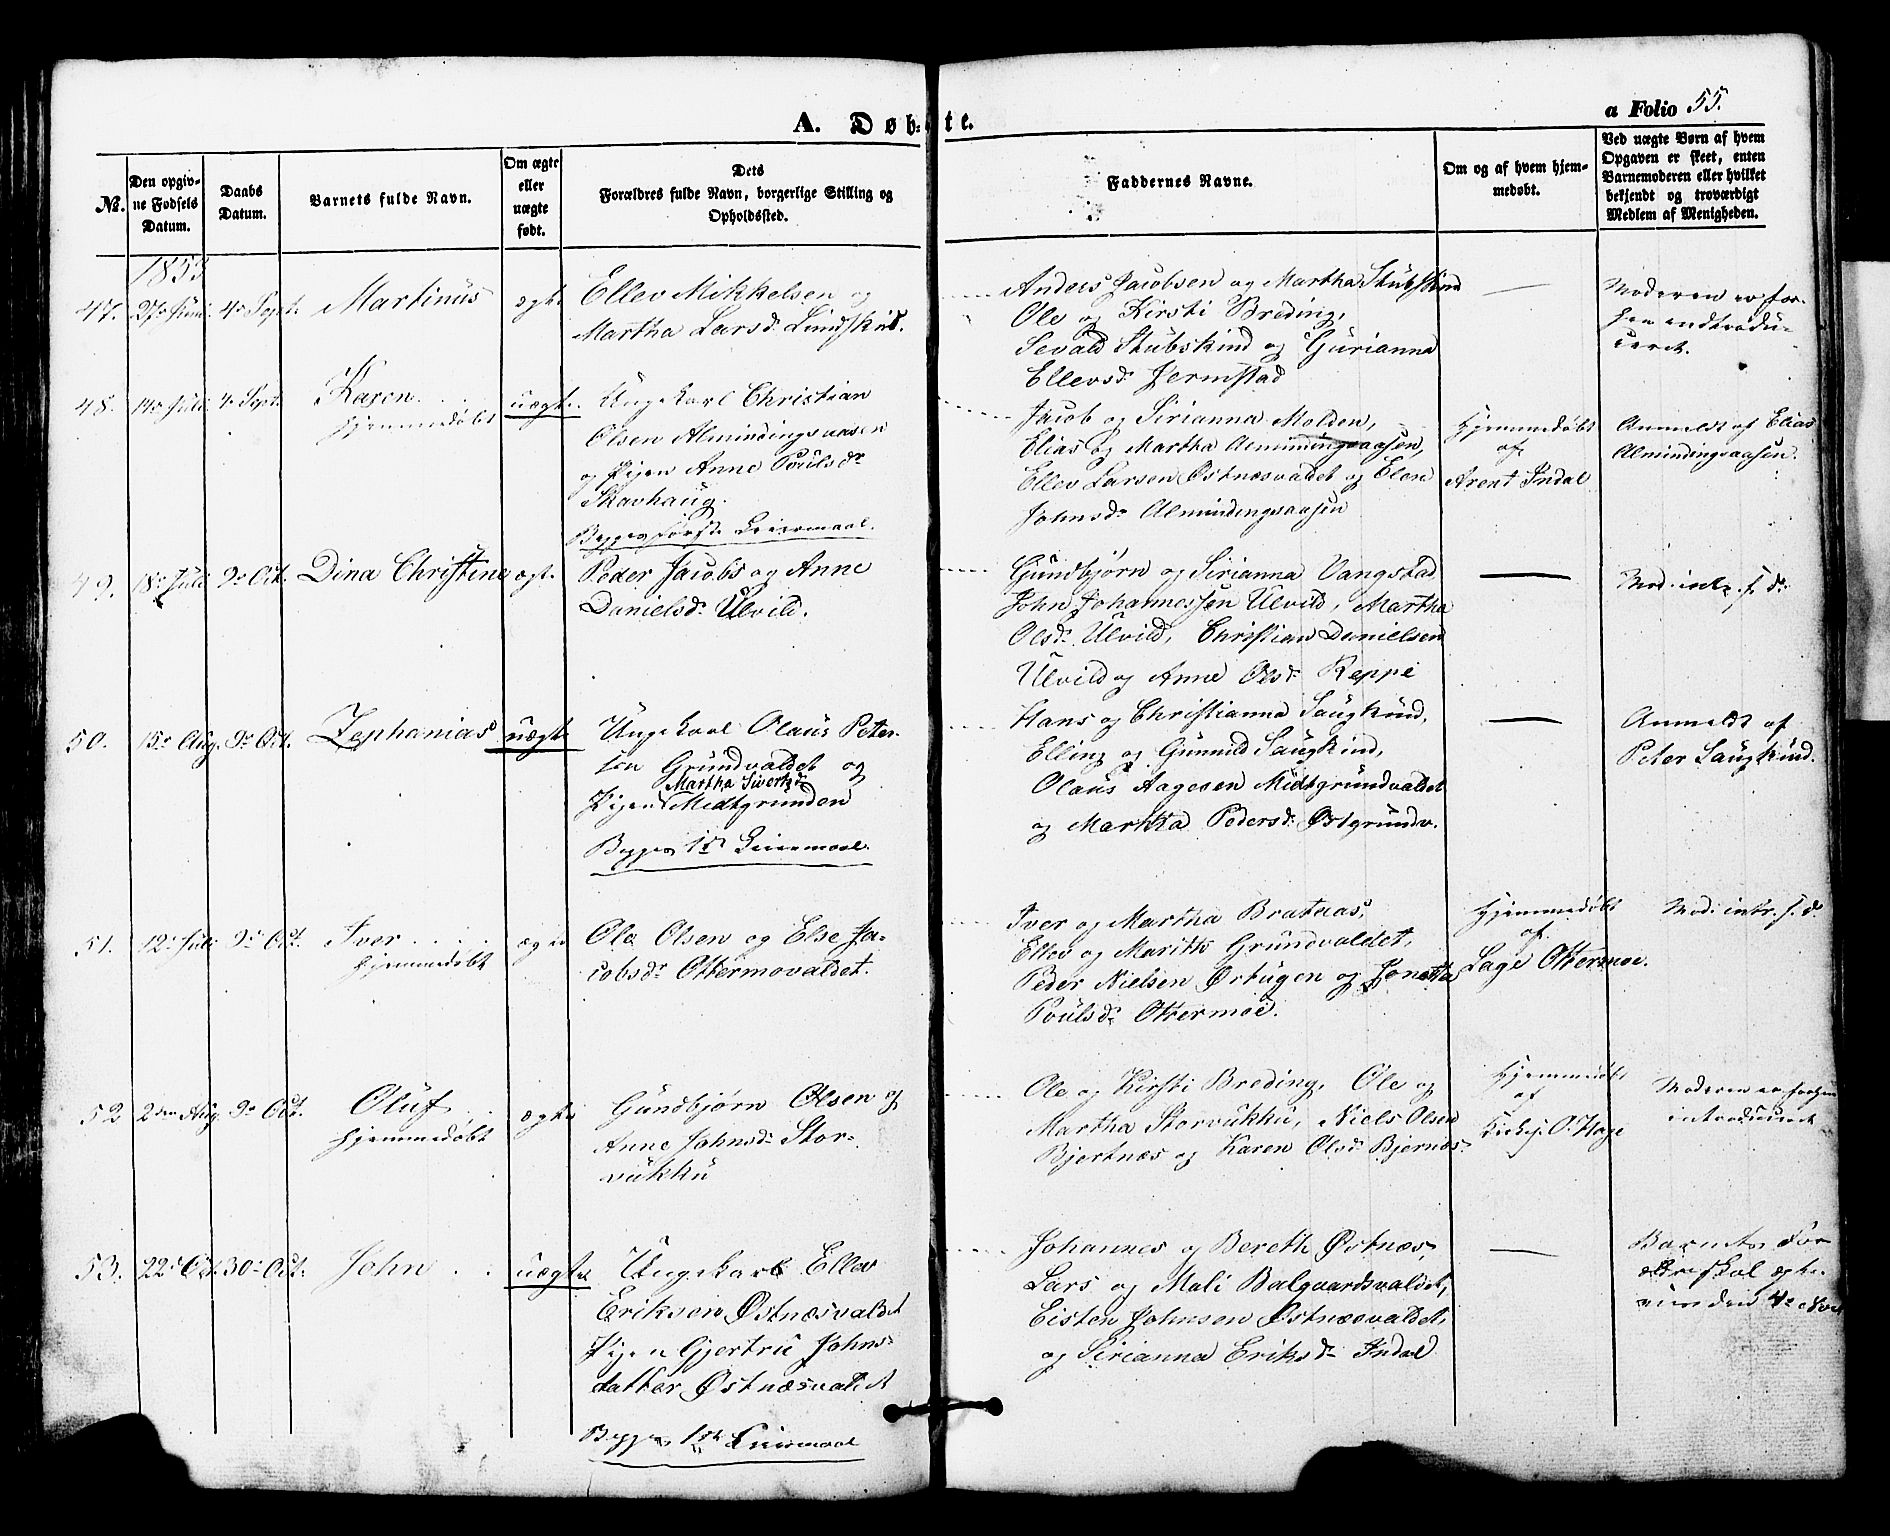 A. Døb-te.
a Folio 55.
No.
Den opgiv-
ne Fødsels
Datum.
Daabs
Datum.
Barnets fulde Navn.
Om ægte
eller
uægte
født.
Dets
Forældres fulde Navn, borgerlige Stilling og
Opholdssted.
Faddernes Navne.
Om og af hvem hjem-
medøbt.
Ved uægte Børn af hvem
Opgaven er skeet, enten
Barnemoderen eller hvilket
bekjendt og troværdigt
Medlem af Menigheden.
1853
47. 27de Juni 4de Sept. Martinus ægte
Ellev Mikkelsen og
Martha Larsd.
Anders Jacobsen og Martha Stubskind
Ole og Kirsti Breding,
Sevald Stubskind og Gurianna
Ellevsd. Jermstad
Moderen er for-
ceret.
48. 14de Juli 4de Sept. Karen
Hjemmedøbt
uægte
Ungekarl Christian
Olsen Almindingsaasen
og Pigen Anne Poulsdr
Skavhaug.
Begges første Leiermaal.
Jacob og Sirianna Molden,
Elias og Martha Almindingsaasen,
Ellev Larsen Østnæsvaldet og Elen
Johnsdr Almindingsaasen
Hjemmedøbt
af
Arent Indal
Anmeldt af Elias
Almindingsaasen.
49. 18de Juli 9de Oct. Dina Christine ægt.
Peder Jacobs og Anne
Danielsdr Ulvild.
Gundbjørn og Sirianna Vangstad
John Johannessen Ulvild, Martha
Olsdr Ulvild, Christian Danielsen
Ulvild og Anne Olsdr Reppe
Mod: intr. f. d.
50. 15de Aug. 9de Oct. Zephanias uægte
Ungekarl Olaus Peter-
sen Grundvaldet og
Martha Sivertsdr
Pigen Midtgrunden
Begges 1ste Leiermaal.
Hans og Christianna Saugkind,
Elling og Gunnild Saugkind,
Olaus Aagesen Midtgrundvaldet
og Martha Pedersdr Østgrundv.
Anmeldt af
Peter Saugkind.
51. 12te Juli 9de Oct. Iver
Hjemmedøbt
ægte
Ole Olsen og Else Ja-
cobsdr Ottermovaldet.
Iver og Martha Brataas,
Ellev og Marith Grundvaldet,
Peder Nielsen Ørtugen og Jonetta
Poulsdr Ottermoe.
Hjemmedøbt
af
Lage Ottermoe.
Mod: intr. f. d.
52 2den Aug. 9de Oct. Oluf
Hjemmedøbt
ægte
Gundbjørn Olsen og
Anne Johnsdr Stor-
vukku
Ole og Kirsti Breding, Ole og
Martha Storvukku, Niels Olsen
Bjertnæs og Karen Olsdr Bjernæs
Hjemmedøbt
af
Kirkesj. O. Hage
Moderen er forhen
introduceret
53. 22de Oct. 30te Oct. John uægte
Ungekarl Ellev
Eriksen Østnæsvaldet
Pigen Gjertru Johns-
datter Østnæsvaldet
Begges 1ste Leiermaal
Johannes og Bereth Østnæs,
Lars og Mali Balgaardsvaldet,
Eisten Johnsen Østnæsvaldet,
og Sirianna Eriksdr Indal
Barnets For-
ældre skal ægte-
vies den 4de Nov